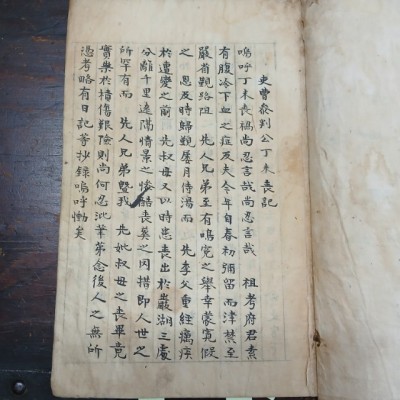 吏曹參判公丁未喪記
嗚呼丁未喪禍尚忍言哉尚忍言哉 祖考府君素
有腹冷下血之症及夫今年自春初彌留而津禁至
嚴省覲路阻 先人兄弟至有鳴寃之擧幸蒙寬假
之 恩及時歸覲屢月侍湯而 先季父重經癘疾
於遭變之前 先叔母又以時患喪出於巖湖三處
分離千里遠隔情景之慘酷喪葬之罔措即人世之
所罕有而 先人兄弟暨我 先妣叔母之喪畢竟
實祟於積傷艱險則尚何忍泚筆第念後人之無所
憑考略有日記等抄錄嗚呼慟矣